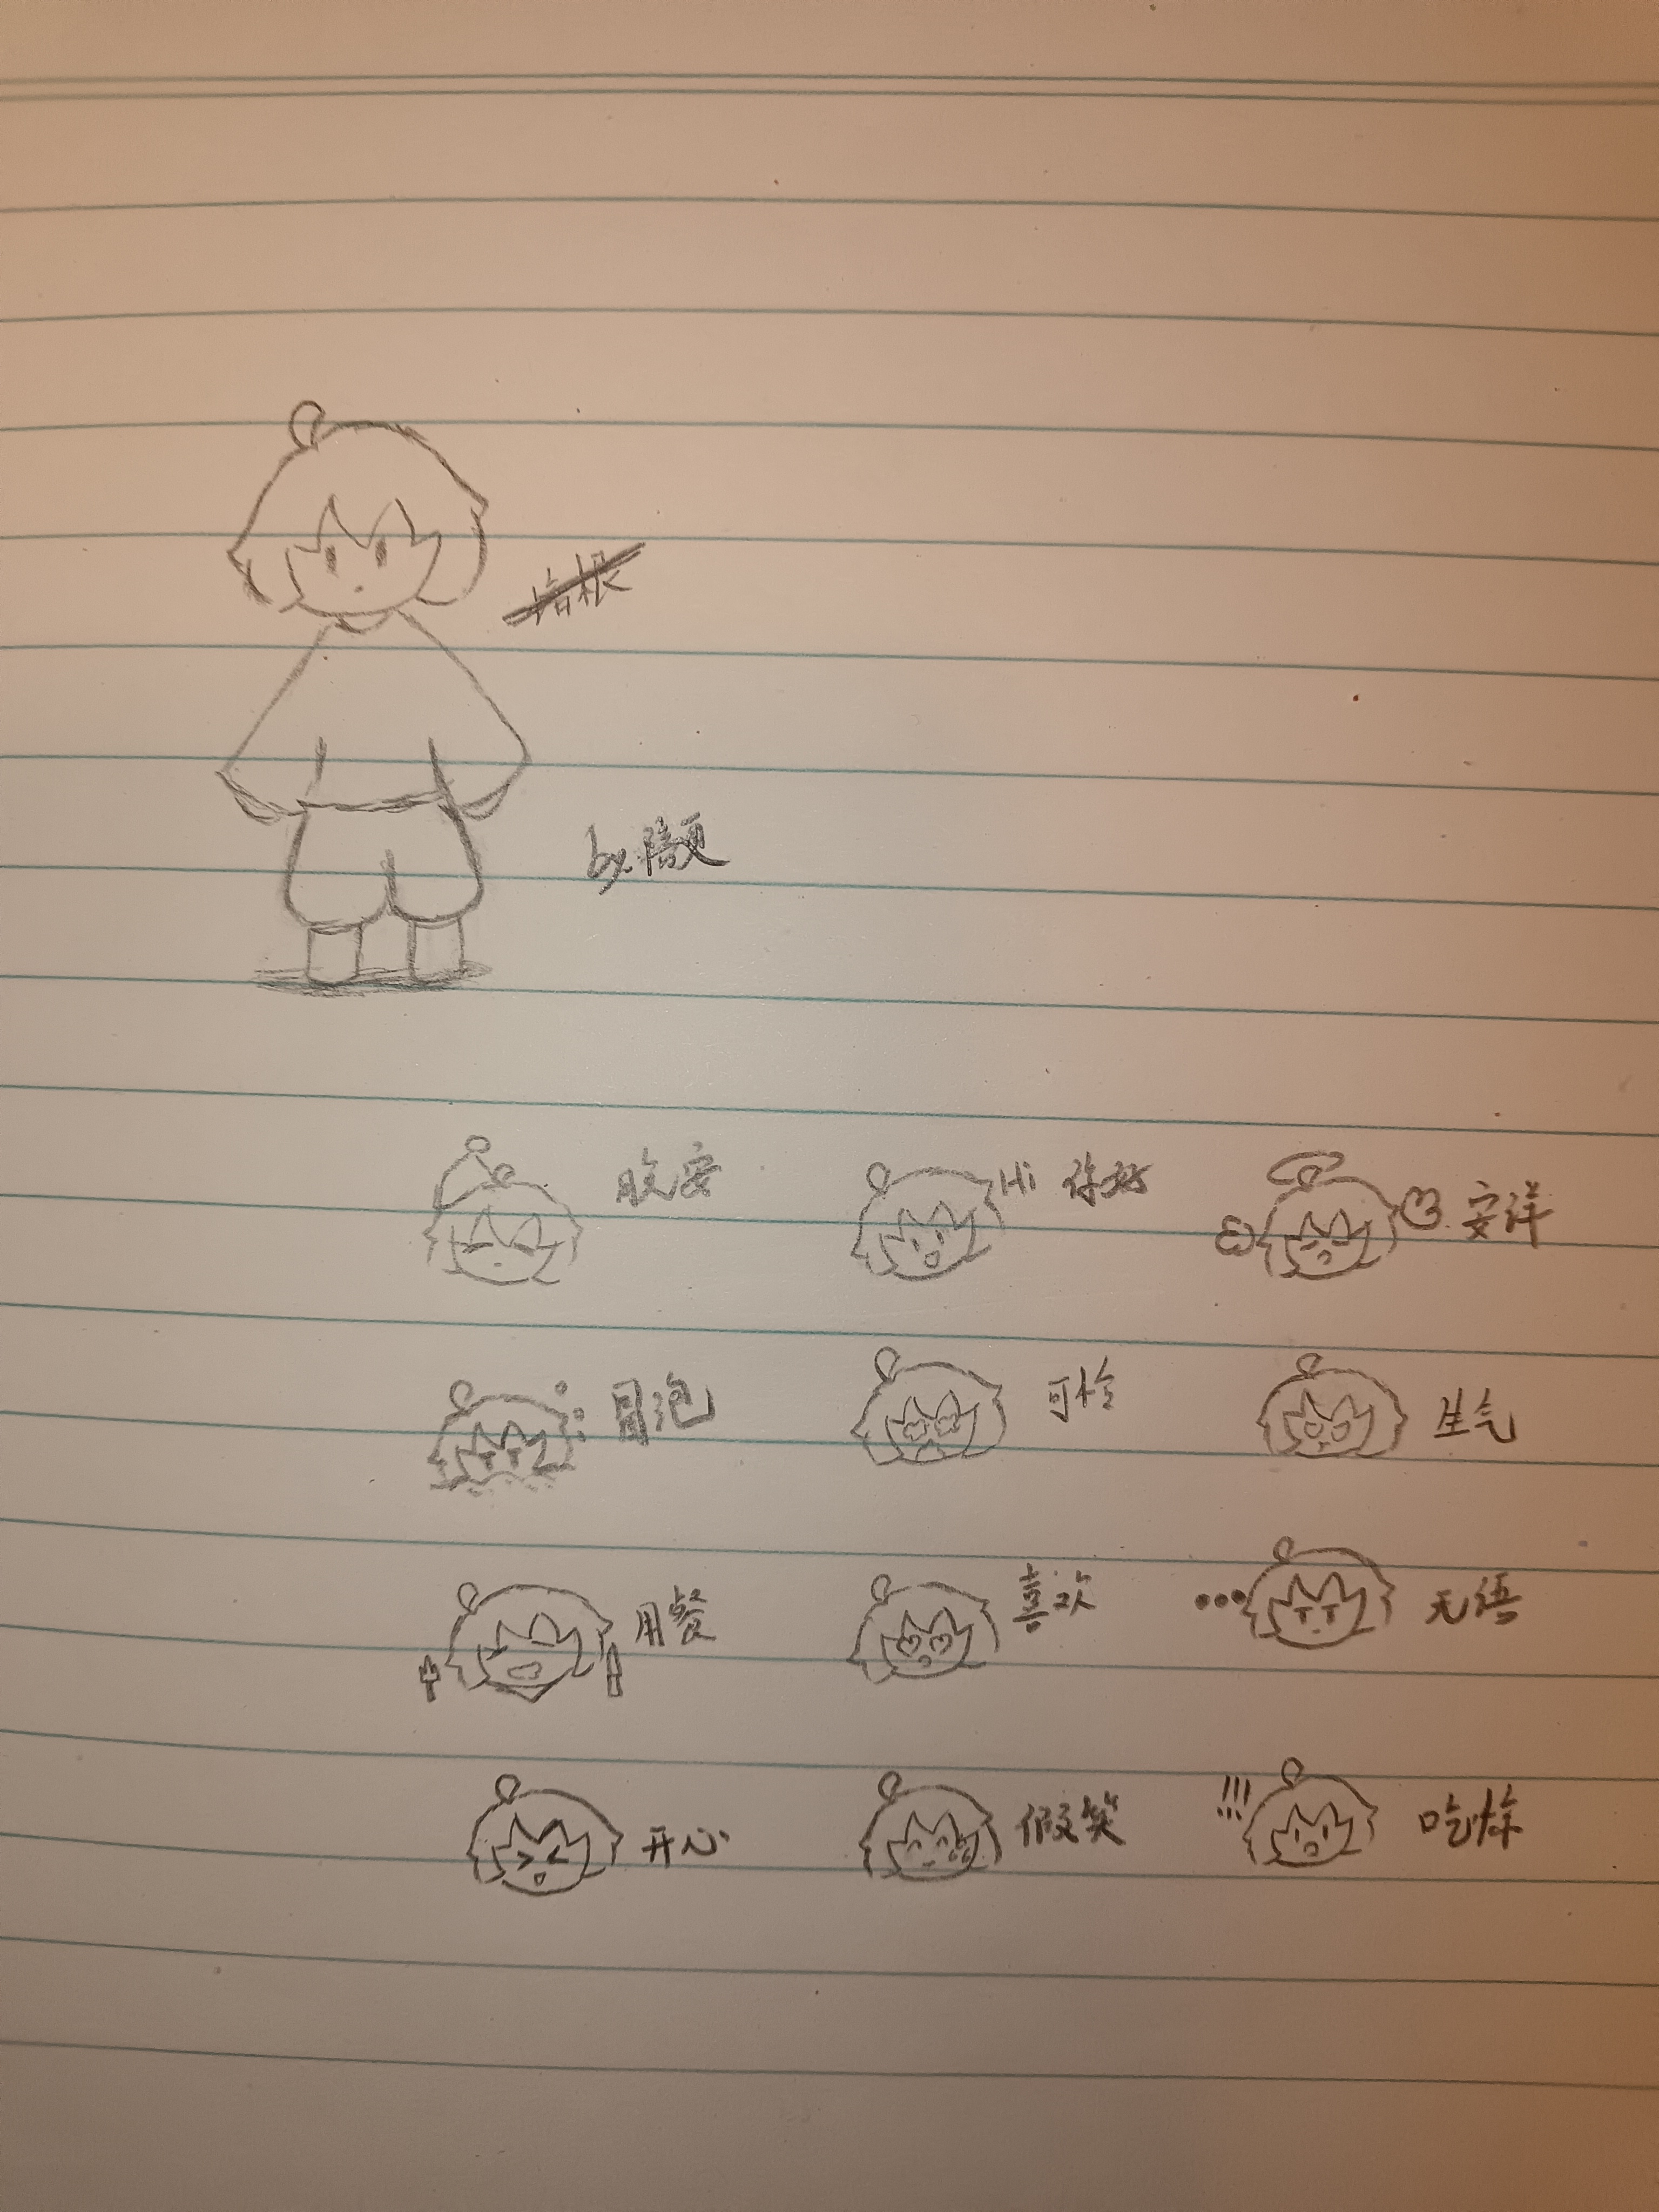 by.
晚安
Hi 你好
安详
冒泡
可怜
生气
用餐
喜欢
无语
开心
假笑
吃炸